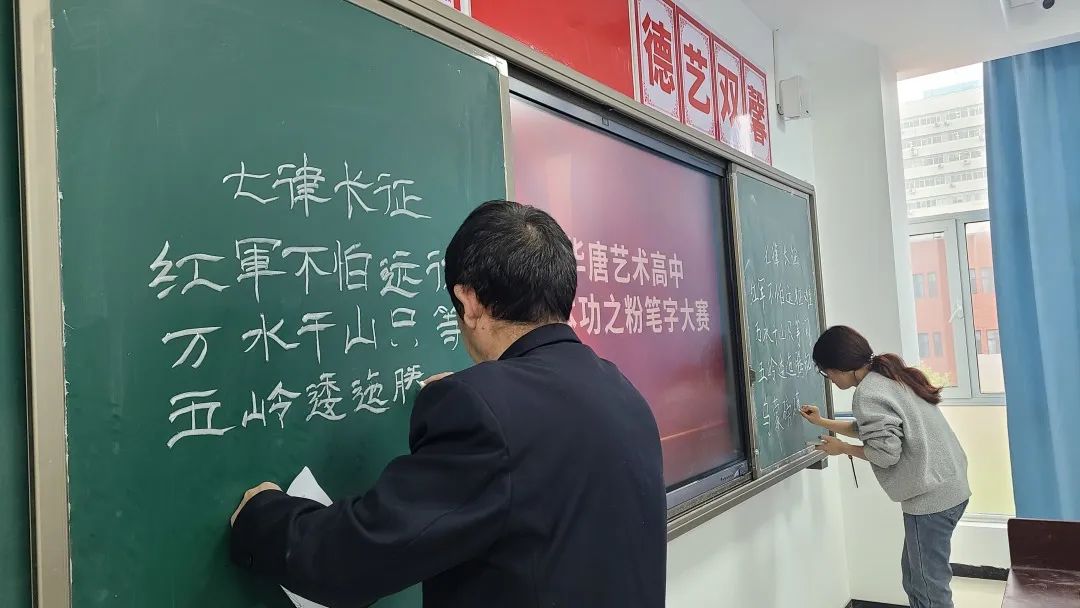 德艺双馨
七律长征
红軍不怕远
万水千山只等
五岭逶迤腾
华唐艺术高中
功之粉笔字大赛
七律长征
红军不怕远征难
万水千山只等闲
五岭逶迤腾
乌蒙磅